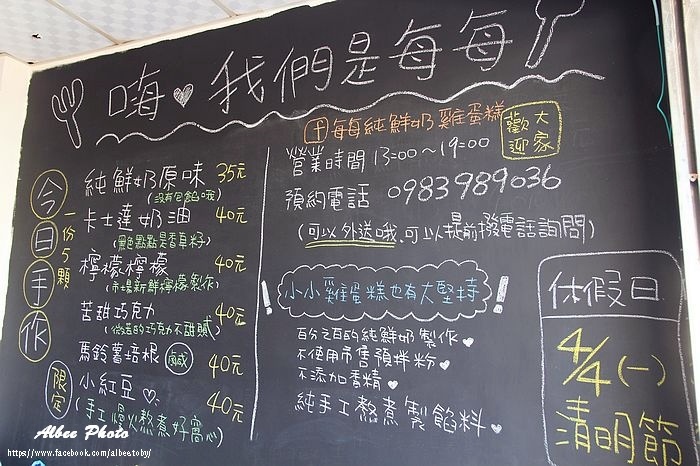 嗨♥我們是每每
今日手作
一份5顆
純鮮奶原味 35元
(沒有包餡哦)
卡士達奶油 40元
(黑色點點是香草籽)
檸檬檸檬 40元
(市場新鮮檸檬製作)
苦甜巧克力 40元
(微苦的巧克力不甜膩)
馬鈴薯培根 鹹 40元
限定
小紅豆♡ 40元
(手工慢火熬煮好窩心)
每每純鮮奶雞蛋糕
歡迎大家
營業時間 13:00~19:00
預約電話 0983989036
(可以外送哦、可以提前撥電話詢問)
小小雞蛋糕也有大堅持
百分之百的純鮮奶製作♥
不使用市售預拌粉♥
不添加香精♥
純手工熬煮製餡料♥
休假日
4/4(一)
清明節
Albee Photo
https://www.facebook.com/albeetoby/